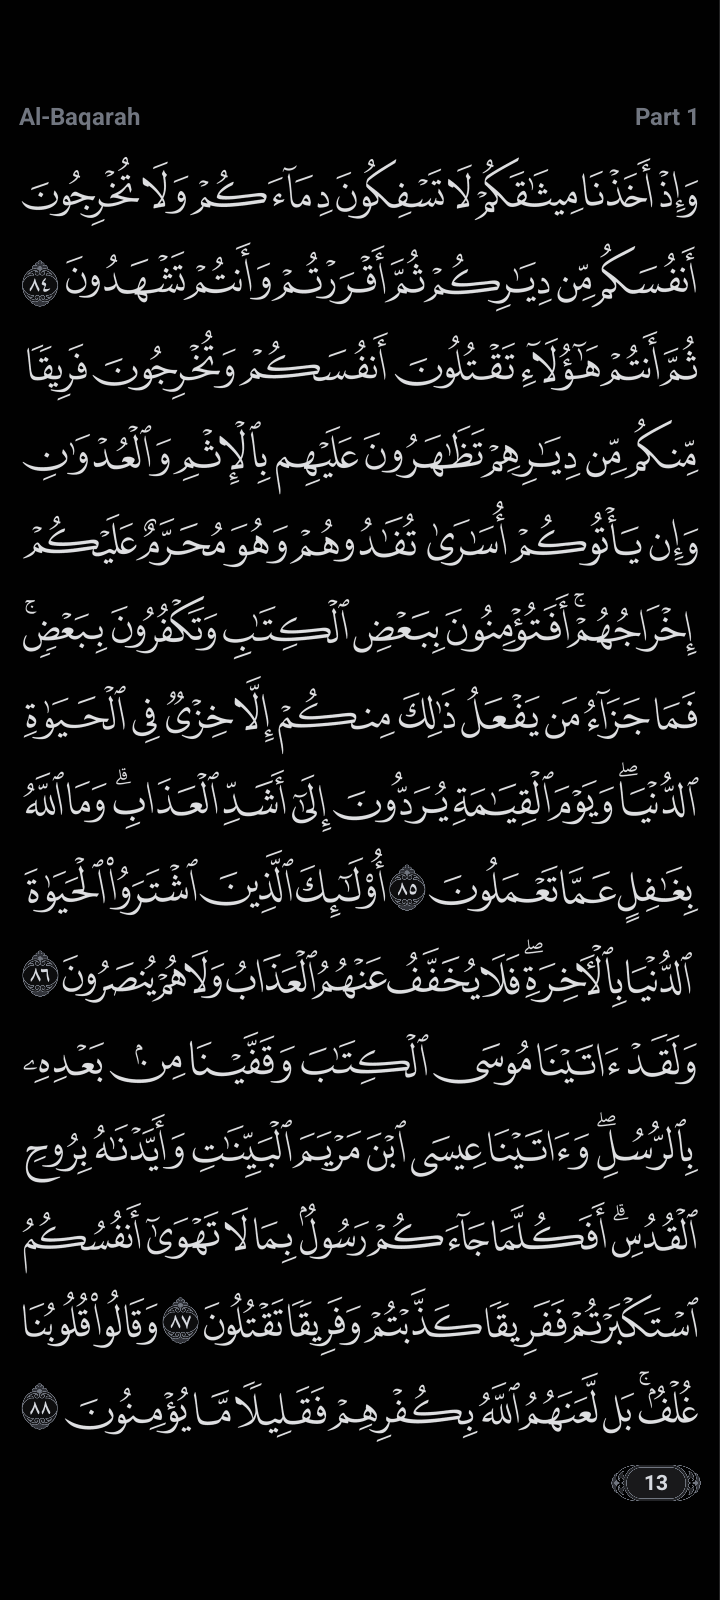 Al-Baqarah
Part 1
وَإِذْ أَخَذْنَا مِيثَٰقَكُمْ لَا تَسْفِكُونَ دِمَآءَكُمْ وَلَا تُخْرِجُونَ
أَنفُسَكُم مِّن دِيَٰرِكُمْ ثُمَّ أَقْرَرْتُمْ وَأَنتُمْ تَشْهَدُونَ ٨٤
ثُمَّ أَنتُمْ هَٰٓؤُلَآءِ تَقْتُلُونَ أَنفُسَكُمْ وَتُخْرِجُونَ فَرِيقًا
مِّنكُم مِّن دِيَٰرِهِمْ تَظَٰهَرُونَ عَلَيْهِم بِٱلْإِثْمِ وَٱلْعُدْوَٰنِ
وَإِن يَأْتُوكُمْ أُسَٰرَىٰ تُفَٰدُوهُمْ وَهُوَ مُحَرَّمٌ عَلَيْكُمْ
إِخْرَاجُهُمْ ۚ أَفَتُؤْمِنُونَ بِبَعْضِ ٱلْكِتَٰبِ وَتَكْفُرُونَ بِبَعْضٍ ۚ
فَمَا جَزَآءُ مَن يَفْعَلُ ذَٰلِكَ مِنكُمْ إِلَّا خِزْىٌ فِى ٱلْحَيَوٰةِ
ٱلدُّنْيَا ۖ وَيَوْمَ ٱلْقِيَٰمَةِ يُرَدُّونَ إِلَىٰٓ أَشَدِّ ٱلْعَذَابِ ۗ وَمَا ٱللَّهُ
بِغَٰفِلٍ عَمَّا تَعْمَلُونَ ٨٥ أُو۟لَٰٓئِكَ ٱلَّذِينَ ٱشْتَرَوُا۟ ٱلْحَيَوٰةَ
ٱلدُّنْيَا بِٱلْءَاخِرَةِ ۖ فَلَا يُخَفَّفُ عَنْهُمُ ٱلْعَذَابُ وَلَا هُمْ يُنصَرُونَ ٨٦
وَلَقَدْ ءَاتَيْنَا مُوسَى ٱلْكِتَٰبَ وَقَفَّيْنَا مِنۢ بَعْدِهِۦ
بِٱلرُّسُلِ ۖ وَءَاتَيْنَا عِيسَى ٱبْنَ مَرْيَمَ ٱلْبَيِّنَٰتِ وَأَيَّدْنَٰهُ بِرُوحِ
ٱلْقُدُسِ ۗ أَفَكُلَّمَا جَآءَكُمْ رَسُولٌۢ بِمَا لَا تَهْوَىٰٓ أَنفُسُكُمُ
ٱسْتَكْبَرْتُمْ فَفَرِيقًا كَذَّبْتُمْ وَفَرِيقًا تَقْتُلُونَ ٨٧ وَقَالُوا۟ قُلُوبُنَا
غُلْفٌۢ ۚ بَل لَّعَنَهُمُ ٱللَّهُ بِكُفْرِهِمْ فَقَلِيلًا مَّا يُؤْمِنُونَ ٨٨
13